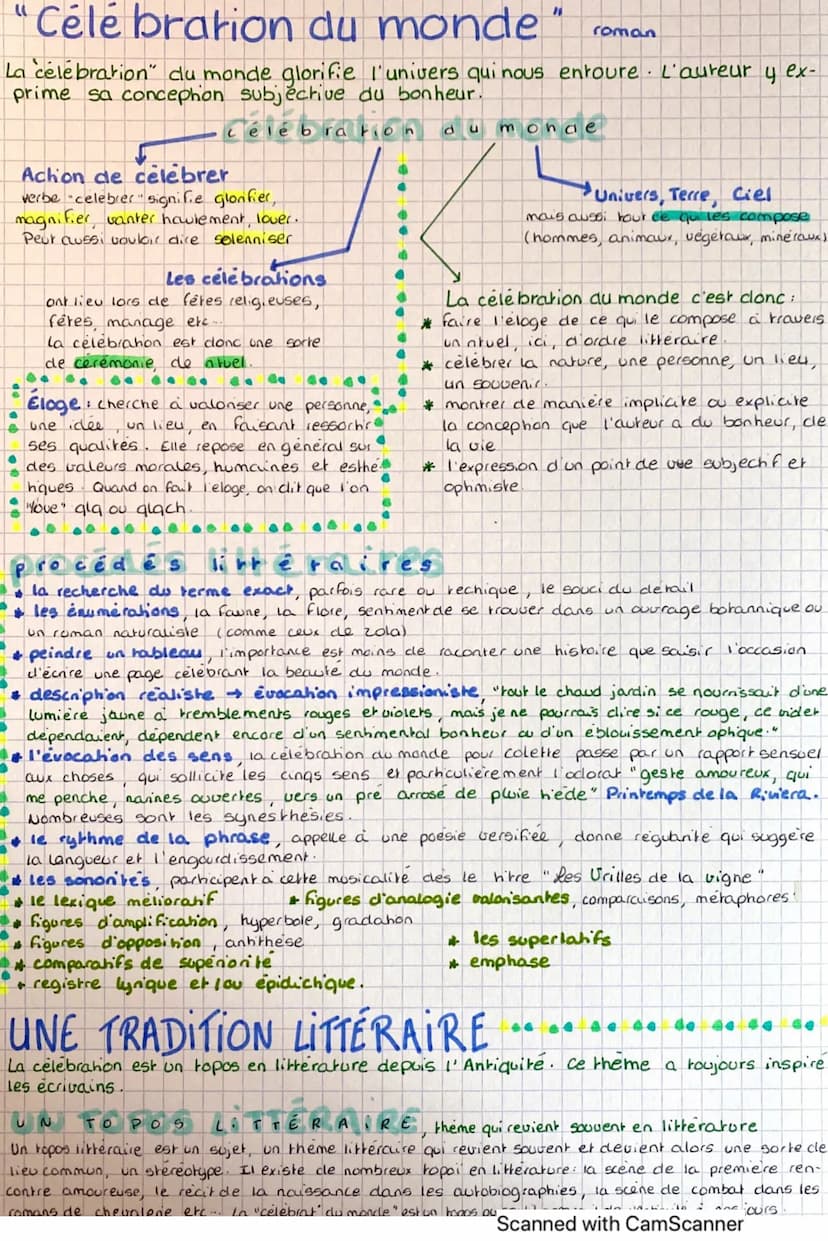 "Célébration du monde" roman
La "célébration" du monde glorifie l'univers qui nous entoure. L'auteur y ex-
prime sa conception subjective du bonheur.
célébration du monde
Action de célébrer
verbe "célébrer" signifie glorifier,
magnifier, vanter hautement, louer.
Peut aussi vouloir dire solenniser
Les célébrations
ont lieu lors de fêtes religieuses,
fêtes, mariage etc...
La célébration est donc une sorte
de cérémonie, de rituel.
Éloge : cherche à valoriser une personne,
une idée, un lieu, en faisant ressortir
ses qualités. Elle repose en général sur
des valeurs morales, humaines et esthé-
tiques. Quand on fait l'éloge, on dit que l'on
"loue" qlq ou qlqch.
Univers, Terre, Ciel
mais aussi tout ce qui les compose
(hommes, animaux, végétaux, minéraux)
La célébration du monde c'est donc :
* faire l'éloge de ce qui le compose à travers
un rituel, ici, d'ordre littéraire.
* célébrer la nature, une personne, un lieu,
un souvenir.
* montrer de manière implicite ou explicite
la conception que l'auteur a du bonheur, de
la vie
* l'expression d'un point de vue subjectif et
optimiste.
procédés littéraires
* la recherche du terme exact, parfois rare ou techique, le souci du détail
* les énumérations, la faune, la flore, sentiment de se trouver dans un ouvrage botannique ou
un roman naturaliste (comme ceux de Zola)
* peindre un tableau, l'importance est moins de raconter une histoire que saisir l'occasion
d'écrire une page célébrant la beauté du monde.
* description réaliste → évocation impressioniste, "tout le chaud jardin se nourrissait d'une
lumière jaune à tremblements rouges et violets, mais je ne pourrais dire si ce rouge, ce violet
dépendaient, dépendent encore d'un sentimental bonheur ou d'un éblouissement optique."
* l'évocation des sens, la célébration du monde pour colette passe par un rapport sensuel
aux choses, qui sollicite les cinqs sens et particulièrement l'odorat "geste amoureux, qui
me penche, narines ouvertes, vers un pré arrosé de pluie tiède" Printemps de la Riviera.
Nombreuses sont les synesthésies.
* le rythme de la phrase, appelle à une poésie versifiée, donne régularité qui suggère
la langueur et l'engourdissement.
* les sonorités, participent à cette musicalité dès le titre "Les Vrilles de la vigne"
* le lexique mélioratif * figures d'analogie valorisantes, comparaisons, métaphores
* figures d'amplification, hyperbole, gradation
* figures d'opposition, antithèse * les superlatifs
* comparatifs de supériorité * emphase
* registre lyrique et/ou épidictique.
UNE TRADITION LITTÉRAIRE
La célébration est un topos en littérature depuis l'Antiquité. Ce thème a toujours inspiré
les écrivains.
UN TOPOS LITTÉRAIRE, thème qui revient souvent en littérature
Un topos littéraire est un sujet, un thème littéraire qui revient souvent et devient alors une sorte de
lieu commun, un stéréotype. Il existe de nombreux topoï en littérature : la scène de la première ren-
contre amoureuse, le récit de la naissance dans les autobiographies, la scène de combat dans les
romans de chevalerie etc... La "célébrat° du monde" est un topos ou jours.
Scanned with CamScanner